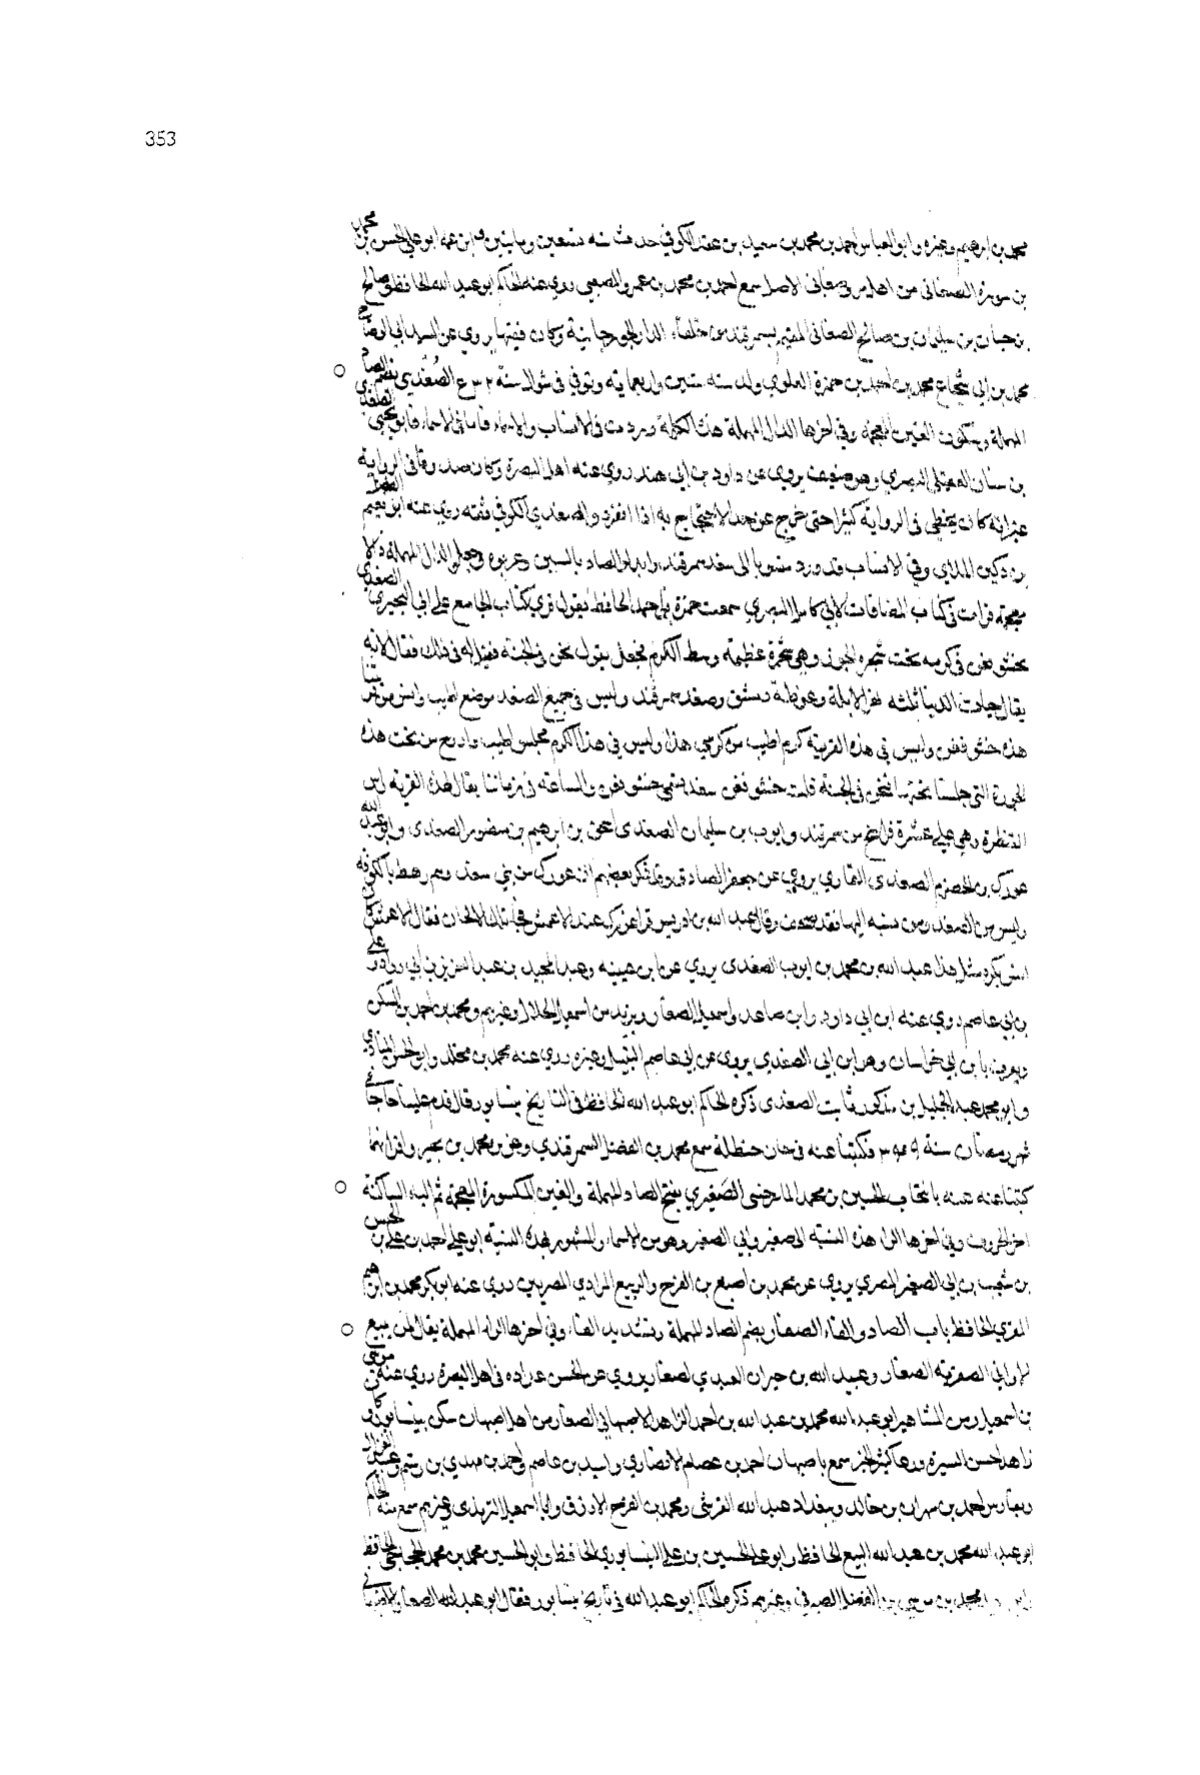 353
محمد بن ابرهيم وغيره وابو العباس احمد بن محمد بن سعيد بن عقد الكوفي حدث سنه وابن عمه ابو علي الحسن بن محمد
بن الصغاني من اهل مرو صغاني الاصل سمع احمد بن محمد بن عمرو روي عنه الحاكم ابو عبد الله الحافظ صالح
بن حبان بن سليمان بن صالح الصغاني المقيم بسمرقند من خلفاء الدار الجوزجانية وكان فقيها يروي عن السيد ابي الوضاح
محمد بن ابي شجاع محمد بن احمد بن حمزة العلوي ولد سنه ستين واربعمايه وتوفي في شوال سنة الصُغدي بضم الصاد
المهملة وسكون الغين المعجمة وفي اخرها الدال المهملة هذه الكلمة وردت في الانساب والاسماء فاما في الاسماء فابو يحيى الصغدي
بن سنان العقيلي البصري وهو ضعيف يروي عن داود بن ابي هند روي عنه اهل البصرة وكان صدوقا في الرواية
غير انه كان يخطي في الرواية كثيرا حتى خرج عن حد الاحتجاج به اذا انفرد والصغدي الكوفي ثقه روي عنه ابو نعيم الفضل
بن دكين الملاي وفي الانساب قد ورد منسوبا الى سغد سمرقند وابدلوا الصاد بالسين وجعلوا الدال المهملة ذالا
معجمة قرات في كتاب المضافات لابي كامل البصري سمعت حمزة بن احمد الحافظ يقول قري كتاب الجامع على ابي البحيري الصغدي
بخشوفغن في كرمه تحت شجره الجوز وهي شجرة عظيمة وسط الكرم فجعل يقول نحن في الجنة فقيل له في ذلك فقال لانه
يقال جنات الدنيا ثلثه نهر الابلة وغوطة دمشق وصغد سمرقند وليس في جميع الصغد موضع اطيب من قريتنا
هذه خشوفغن وليس في هذه القرية كرم اطيب من كرمي هذا وليس في هذا الكرم مجلس اطيب من تحت هذه
الجوزة التي جلسنا تحتها فنحن في الجنة قلت خشوفغن والساعة في زماننا يقال لهذه القرية راس
القنطرة وهي على عشرة فراسخ من سمرقند وايوب بن سليمان الصغدي اسحق بن ابرهيم بن منصور الصغدي وابو عبد الله
غورك بن الحضرم الصغدي القاري يروي عن جعفر الصادق وذكر بعضهم ان غورك من بني سعد وهم رهط بالكوفه
وليس من الصغد ومن نسبه اليها فقد صحف وقال عبد الله بن ادريس قرا غورك عند الاعمش بتلك الالحان فقال الاعمش كان
انس يكره مثل هذا عبد الله بن محمد بن ايوب الصغدي يروي عن ابن عيينه وعبد المجيد بن عبد العزيز بن ابي رواد وعلي
بن ابي عاصم روي عنه ابن ابي داود وابن صاعد واسمعيل الصفار ويزيد بن اسمعيل الخلال وغيرهم ومحمد بن احمد بن السكن
ويعرف بابن ابي خراسان وهو ابن ابي الصغدي يروي عن ابي عاصم النبيل وغيره روي عنه محمد بن مخلد وابو الحسن المنادي
وابو محمد عبد الجليل بن مذكور بن ثابت الصغدي ذكره الحاكم ابو عبد الله الحافظ في التاريخ نيسابور قال قدم علينا حاجا في
شهر رمضان سنة ٣٥٩ فكتبنا عنه في خان حنظلة سمع محمد بن الفضل السمرقندي وعمر بن محمد بن بجير واقرانهما
كتبنا عنه بانتخاب الحسين بن محمد الماسرجسي الصَغيري بفتح الصاد المهملة والغين المكسورة المعجمة ثم اليا الساكنة
اخر الحروف وفي اخرها الرا هذه النسبة الى صغير وابي الصغير وهو من الاسماء والمشهور بهذه النسبة ابو علي احمد بن علي بن الحسن
بن شعيب بن ابي الصغير المصري يروي عن محمد بن اصبغ بن الفرج والربيع المرادي المصريين روي عنه ابو بكر محمد بن ابرهيم
المقري الحافظ باب الصاد والفاء الصفار بضم الصاد المهملة وتشديد الفاء وفي اخرها الراء المهملة يقال لمن يبيع
الاواني الصفرية الصفار وعبيد الله بن جيران العبدي الصفار يروي عن الحسن عداده في اهل البصرة روي عنه موسى
بن اسمعيل ومن المشاهير ابو عبد الله محمد بن عبد الله بن احمد الزاهد الاصبهاني الصفار من اهل اصبهان سكن نيسابور وكان
زاهدا حسن السيرة ورعا كثير الخير سمع باصبهان احمد بن عصام الانصاري واسيد بن عاصم واحمد بن مهدي بن رستم وعبيد الغزال
وبفارس احمد بن مهران بن خالد وببغداد عبد الله القرشي ومحمد بن الفرج الازرق وابا اسمعيل الترمذي وغيرهم سمع منه الحاكم
ابو عبد الله محمد بن عبد الله البيع الحافظ وابو علي الحسين بن علي النيسابوري الحافظ وابو الحسين محمد بن محمد الحجاجي الحافظ
محمد بن موسى بن الفضل الصيرفي وغيرهم ذكره الحاكم ابو عبد الله في تاريخ نيسابور فقال ابو عبد الله الصفار الاصبهاني